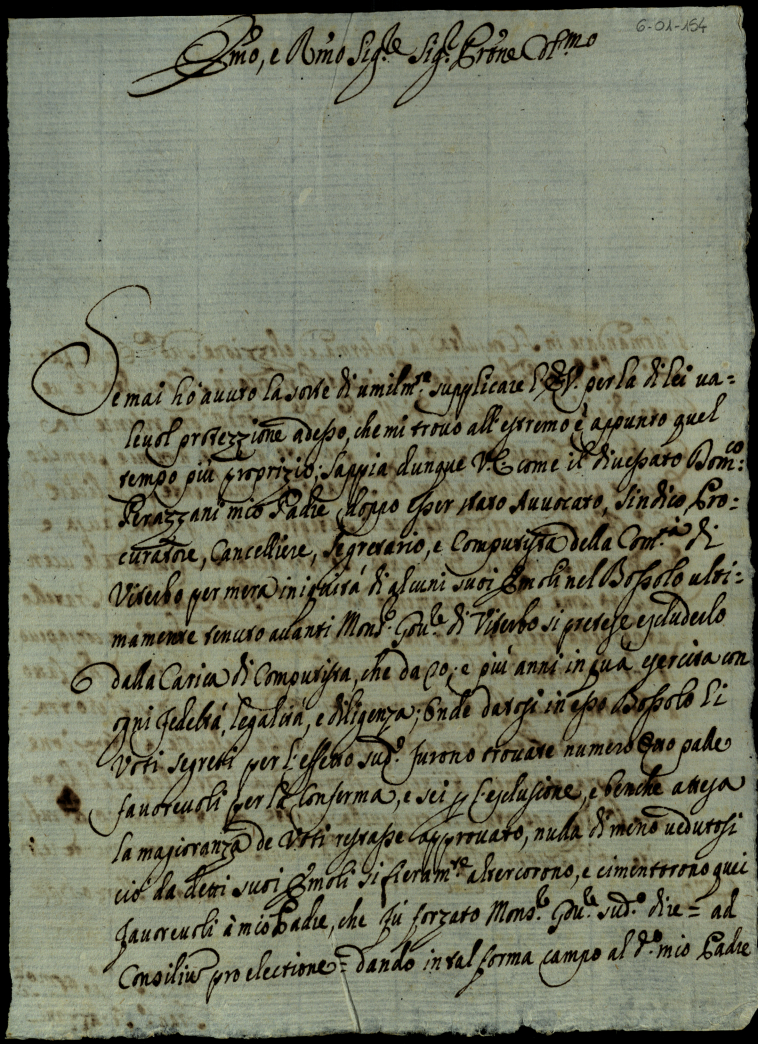 6-01-154
Emo, e Rmo Sig.re Sig.r Prone Col.mo
Se mai hò avuto la sorte di umilm.te supplicare l'E.V. per la di lei va=
levol protezzione adesso, che mi trovo all'estremo è appunto quel
tempo più proprizio; Sappia dunque V.E. come il divessato Dom.co
Perazzani mio Padre doppo esser stato Avvocato, Sindico, Pro=
curatore, Cancelliere, Segretario, e Computista della Com.tà di
Viterbo per mera iniquità di alcuni suoi Emoli nel Bossolo ulti=
mamente tenuto avanti Mons.r Gov.re di Viterbo si pretese escluderlo
dalla Carica di Computista, che da 20, e più anni in quà esercita con
ogni fedeltà, legalità, e diligenza; Onde datosi in esso Bossolo li
Voti segreti per l'effetto sud.o furono trovate numero Otto palle
favorevoli per la Conferma, e sei p l'esclusione, e benche attesa
la majioranza de Voti restasse approvato, nulla di meno vedutosi
ciò da detti suoi Emoli si fieram.te altercorono, e cimentorono quei
favorevoli à mio Padre, che fù forzato Mons.r Gov.re sud.o dire= ad
Consiliu pro electione= dando in tal forma campo al d.o mio Padre